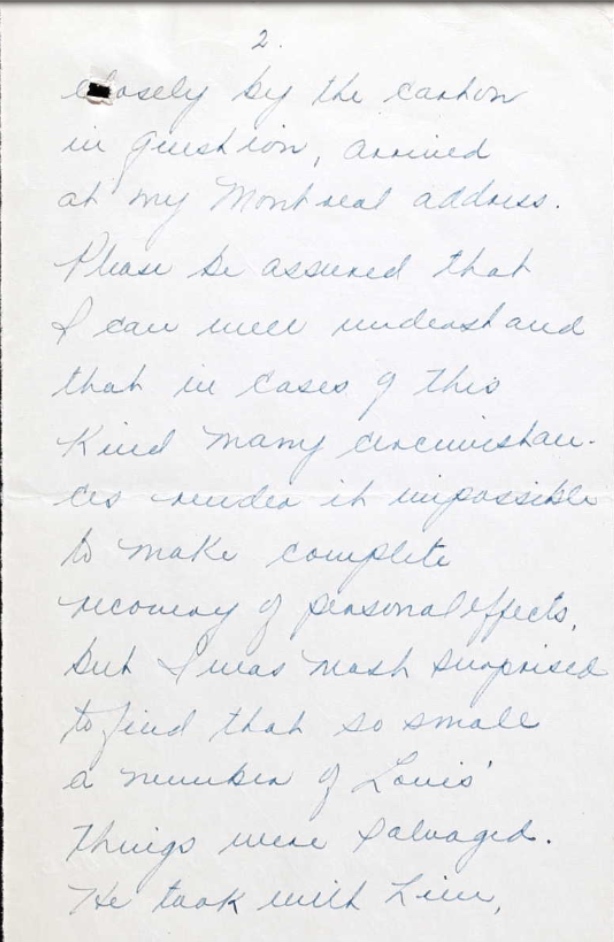 2.
closely by the carton
in question, arrived
at my Montreal address.
Please be assured that
I can well understand
that in cases of this
kind many circumstan-
ces render it impossible
to make complete
recovery of personal effects,
but I was most surprised
to find that so small
a number of Louis'
things were salvaged.
He took with him,